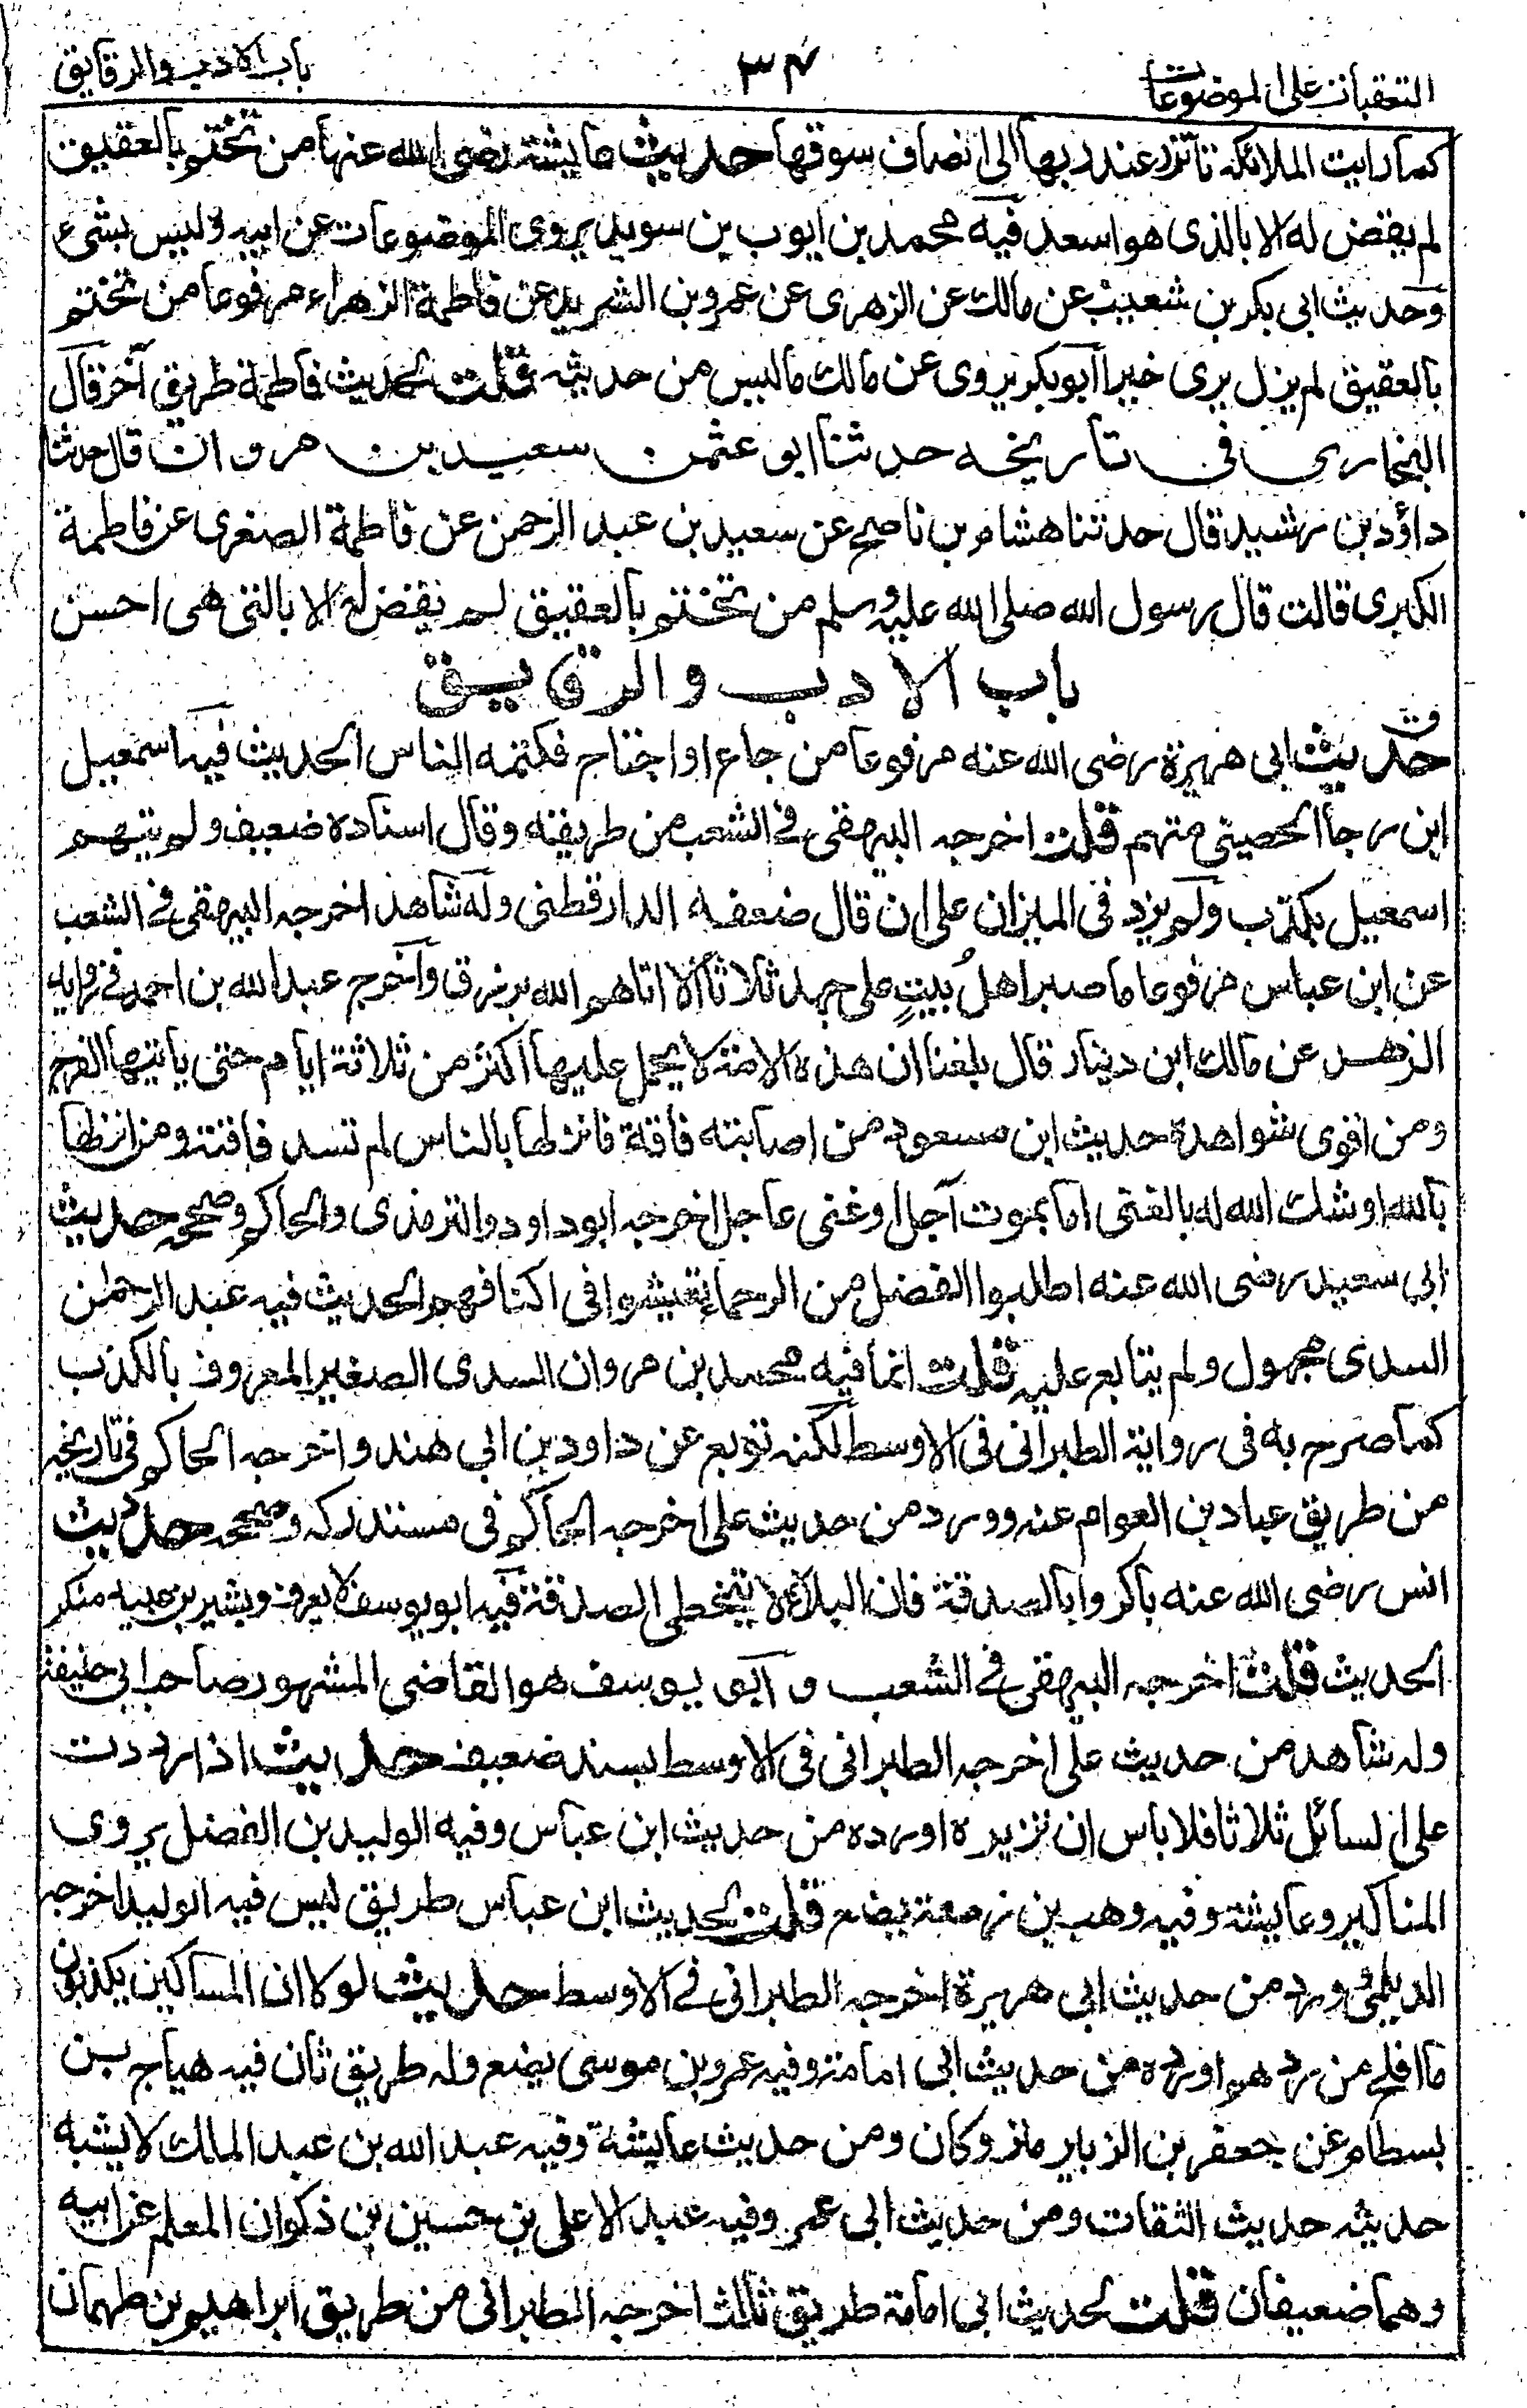 التعقبات على الموضوعات
۳۴
باب الادب والرقايق
كما رايت الملائكة تأتزر عند ربها الى انصاف سوقها حديث عايشة رضى الله عنها من تختم بالعقيق
لم يقض له الا بالذى هو اسعد فيه محمد بن ايوب بن سويد يروى الموضوعات عن ابيه وليس بشىء
وحديث ابى بكر بن شعيب عن مالك عن الزهرى عن عمرو بن الشريد عن فاطمة الزهراء مرفوعا من تختم
بالعقيق لم يزل يرى خيرا ابو بكر يروى عن مالك ما ليس من حديثه قلت لحديث فاطمة طريق آخر قال
البخارى فى تاريخه حدثنا ابو عثمن سعيد بن مروان قال حدثنا
داؤد بن رشيد قال حدثنا هشام بن ناصح عن سعيد بن عبد الرحمن عن فاطمة الصغرى عن فاطمة
الكبرى قالت قال رسول الله صلى الله عليه وسلم من تختم بالعقيق لم يقض له الا بالتى هى احسن
باب الادب والرقيق
حديث ابى هريرة رضى الله عنه مرفوعا من جاع او اجتاح فكتمه الناس الحديث فيه اسمعيل
ابن رجا الحصينى متهم قلت اخرجه البيهقى فى الشعب من طريقته وقال اسناده ضعيف ولم يتهم
اسمعيل بكذب ولم يزد فى الميزان على ان قال ضعفه الدارقطنى وله شاهد اخرجه البيهقى فى الشعب
عن ابن عباس مرفوعا ما صبر اهل بيتٍ على جهد ثلاثا الا اتاهم الله برزق وآخرج عبد الله بن احمد فى زوايد
الزهد عن مالك ابن دينار قال بلغنا ان هذه الامة لا يحمل عليها اكثر من ثلاثة ايام حتى ياتيها الفرج
ومن اقوى شواهده حديث ابن مسعود من اصابته فاقة فانزلها بالناس لم تسد فاقته ومن انزلها
بالله اوشك الله له بالغنى اما بموت آجل او غنى عاجل اخرجه ابو داود والترمذى والحاكم وصححه حديث
ابى سعيد رضى الله عنه اطلبوا الفضل من الرحماء تعيشوا فى اكنافهم الحديث فيه عبد الرحمن
السدى مجهول ولم يتابع عليه قلت انما فيه محمد بن مروان السدى الصغير المعروف بالكذب
كما صرح به فى رواية الطبرانى فى الاوسط لكنه توبع عن داود بن ابى هند واخرجه الحاكم فى تاريخه
من طريق عباد بن العوام عنه وورد من حديث على اخرجه الحاكم فى مستدركه وصححه حديث
انس رضى الله عنه باكروا بالصدقة فان البلاء لا يتخطى الصدقة فيه ابو يوسف لا يعرف وبشير بن عبيد منكر
الحديث قلت اخرجه البيهقى فى الشعب و ابو يوسف هو القاضى المشهور صاحب ابى حنيفة
وله شاهد من حديث على اخرجه الطبرانى فى الاوسط بسند ضعيف حديث اذا رددت
على السائل ثلاثا فلا باس ان تزيره اورده من حديث ابن عباس وفيه الوليد بن الفضل يروى
المناكير وعايشة وفيه وهب بن زمعة يضع قلت لحديث ابن عباس طريق ليس فيه الوليد اخرجه
الديلمى وورد من حديث ابى هريرة اخرجه الطبرانى فى الاوسط حديث لولا ان المساكين يكذبون
ما افلح من ردهم اورده من حديث ابى امامة وفيه عمرو بن موسى يضع وله طريق ثان فيه هياج بن
بسطام عن جعفر بن الزبير متروكان ومن حديث عايشة وفيه عبد الله بن عبد المالك لا يشبه
حديثه حديث الثقات ومن حديث ابى عمر وفيه عبد الاعلى بن حسين بن ذكوان المعلم عن ابيه
وهما ضعيفان قلت لحديث ابى امامة طريق ثالث اخرجه الطبرانى من طريق ابراهيم بن طهمان